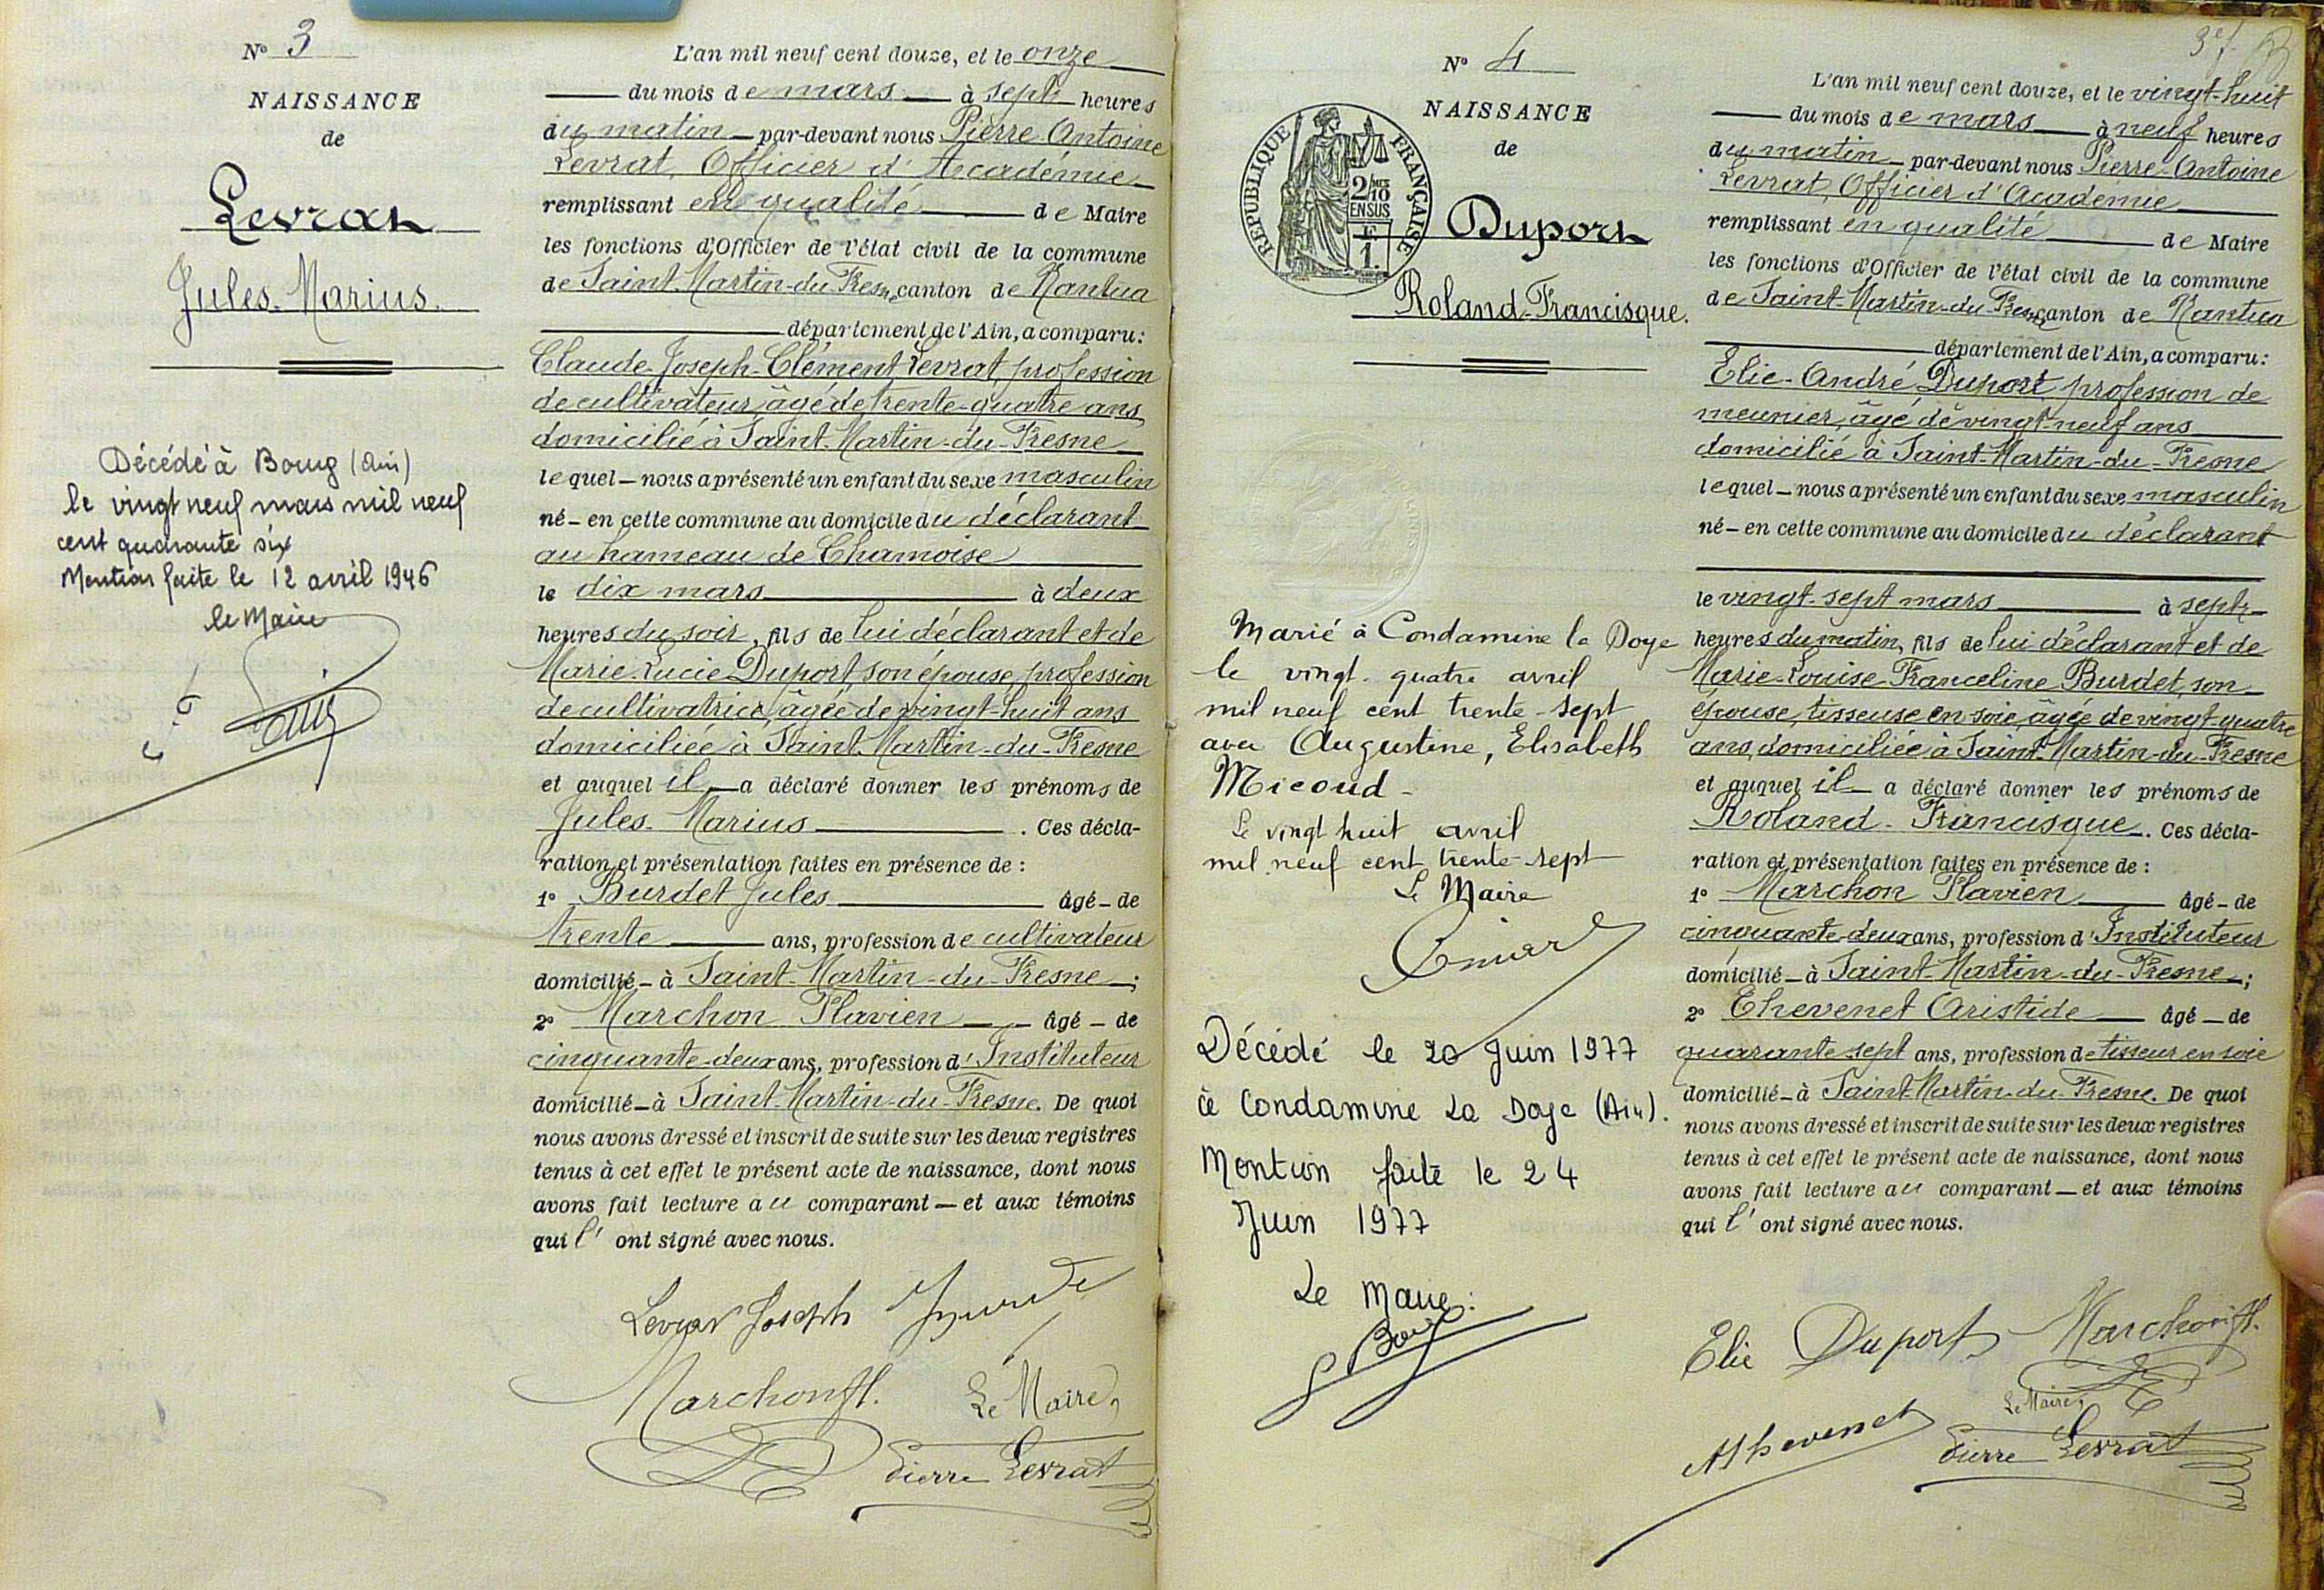 N° 3
NAISSANCE
de
Levrat
Jules-Marius.
Décédé à Bourg (Ain)
le vingt neuf mars mil neuf
cent quarante six
Mention faite le 12 avril 1946
le Maire
L'an mil neuf cent douze, et le onze
du mois de mars à sept heures
du matin par-devant nous Pierre Antoine
Levrat, Officier d'Académie
remplissant en qualité de Maire
les fonctions d'Officier de l'état civil de la commune
de Saint-Martin-du-Fresne canton de Nantua
département de l'Ain, a comparu :
Claude-Joseph-Clément Levrat, profession
de cultivateur, âgé de trente-quatre ans,
domicilié à Saint-Martin-du-Fresne
lequel nous a présenté un enfant du sexe masculin
né en cette commune au domicile du déclarant
au hameau de Chamoise
le dix mars à deux
heures du soir, fils de lui déclarant et de
Marie-Lucie Duport, son épouse, profession
de cultivatrice, âgée de vingt-huit ans
domiciliée à Saint-Martin-du-Fresne
et auquel il a déclaré donner les prénoms de
Jules-Marius . Ces décla-
ration et présentation faites en présence de :
1° Burdet Jules âgé de
trente ans, profession de cultivateur
domicilié à Saint-Martin-du-Fresne ;
2° Marchon Flavien âgé de
cinquante-deux ans, profession d'Instituteur
domicilié à Saint-Martin-du-Fresne. De quoi
nous avons dressé et inscrit de suite sur les deux registres
tenus à cet effet le présent acte de naissance, dont nous
avons fait lecture au comparant et aux témoins
qui l' ont signé avec nous.
Levrat Joseph
Marchon fl. Le Maire,
Pierre Levrat
3e f.
N° 4
NAISSANCE
de
REPUBLIQUE FRANÇAISE
2/10 MES
EN SUS
F
1.
Duport
Roland-Francisque.
Marié à Condamine la Doye
le vingt-quatre avril
mil neuf cent trente-sept
avec Augustine, Elisabeth
Micoud-
Le vingt huit avril
mil neuf cent trente-sept
Le Maire
Décédé le 20 Juin 1977
à Condamine La Doye (Ain).
Mention faite le 24
Juin 1977
Le Maire :
L'an mil neuf cent douze, et le vingt-huit
du mois de mars à neuf heures
du matin par-devant nous Pierre-Antoine
Levrat, Officier d'Académie
remplissant en qualité de Maire
les fonctions d'Officier de l'état civil de la commune
de Saint-Martin-du-Fresne canton de Nantua
département de l'Ain, a comparu :
Elie-André Duport, profession de
meunier, âgé de vingt-neuf ans
domicilié à Saint-Martin-du-Fresne
lequel nous a présenté un enfant du sexe masculin
né en cette commune au domicile du déclarant
le vingt-sept mars à sept
heures du matin, fils de lui déclarant et de
Marie-Louise-Franceline Burdet, son
épouse, tisseuse en soie, âgée de vingt-quatre
ans, domiciliée à Saint-Martin-du-Fresne
et auquel il a déclaré donner les prénoms de
Roland-Francisque . Ces décla-
ration et présentation faites en présence de :
1° Marchon Flavien âgé de
cinquante-deux ans, profession d'Instituteur
domicilié à Saint-Martin-du-Fresne ;
2° Thevenet Aristide âgé de
quarante sept ans, profession de tisseur en soie
domicilié à Saint-Martin-du-Fresne. De quoi
nous avons dressé et inscrit de suite sur les deux registres
tenus à cet effet le présent acte de naissance, dont nous
avons fait lecture au comparant et aux témoins
qui l' ont signé avec nous.
Elie Duport Marchon fl.
Le Maire,
AThevenet Pierre Levrat